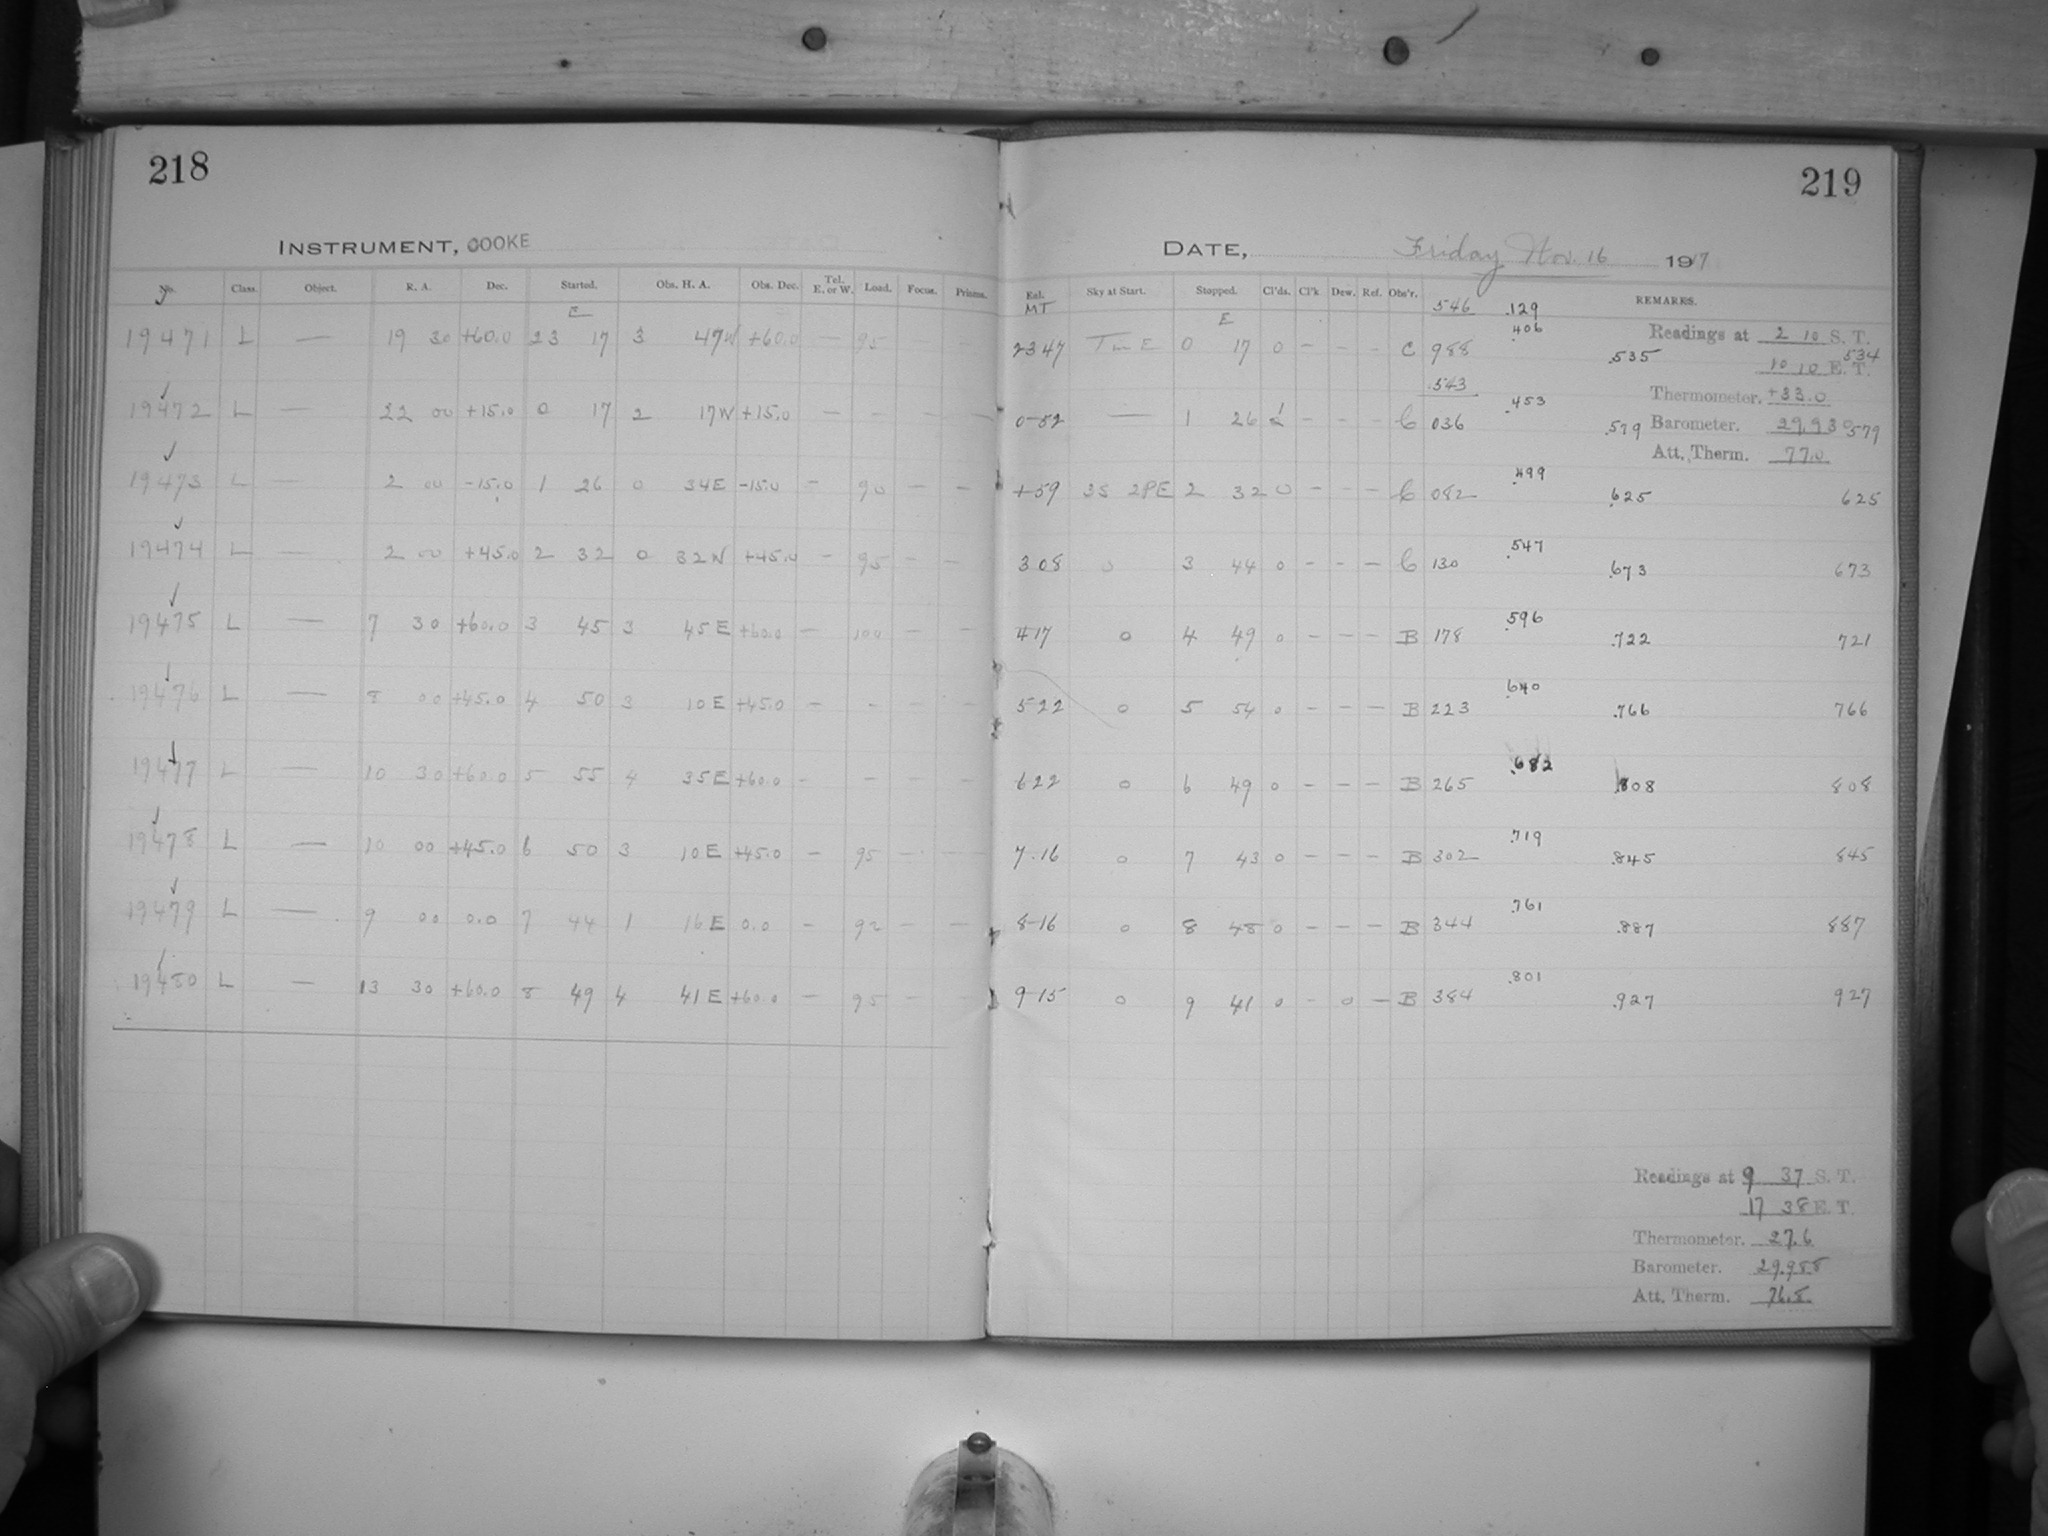 218
INSTRUMENT, COOKE
No. Class. Object. R. A. Dec. Started. Obs. H. A. Obs. Dec. Tel. E. or W. Load. Focus. Prisms.
E
19471 L — 19 30 +60.0 23 17 3 47W +60.0 — 95
19472 L — 22 00 +15.0 0 17 2 17W +15.0 — - - -
19473 L — 2 00 -15.0 1 26 0 34E -15.0 - 90 - -
19474 L — 2 00 +45.0 2 32 0 32W +45.0 - 95 - -
19475 L — 7 30 +60.0 3 45 3 45E +60.0 - 100 - -
19476 L — 8 00 +45.0 4 50 3 10E +45.0 - - - -
19477 L — 10 30 +60.0 5 55 4 35E +60.0 - - - -
19478 L — 10 00 +45.0 6 50 3 10E +45.0 - 95 - -
19479 L — 9 00 0.0 7 44 1 16E 0.0 - 92 - -
19480 L — 13 30 +60.0 8 49 4 41E +60.0 - 95 - -
219
DATE, Friday Nov. 16 1917
Sky at Start. Stopped. Cl'ds. Cl'k Dew. Ref. Obs'r. .546 .129 REMARKS.
MT
E
.406
2347 0 17 0 - - - C 988 .535 534
Readings at 2 10 S. T.
10 10 E. T.
Thermometer. +33.0
Barometer. 29.930
Att. Therm. 77.0
.543
0-52 — 1 26 - - - C 036 .453 .579 579
+59 2 32 0 - - - C 082 .499 .625 625
308 0 3 44 0 - - - C 130 .547 .673 673
417 0 4 49 0 - - - B 178 .596 .722 721
522 0 5 54 0 - - - B 223 .640 .766 766
622 0 6 49 0 - - - B 265 .682 .808 808
7.16 0 7 43 0 - - - B 302 .719 .845 845
8-16 0 8 48 0 - - - B 344 .761 .887 887
9-15 0 9 41 0 - 0 - B 384 .801 .927 927
Readings at 9 37 S. T.
17 38 E. T.
Thermometer. 27.6
Barometer. 29.988
Att. Therm. 76.8